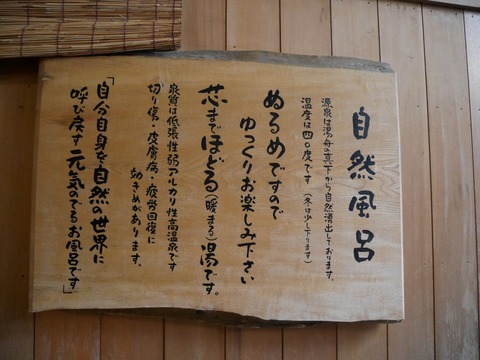 自然風呂
源泉は湯舟の真下から自然湧出しております。
温度は四〇度です(冬は少し下ります)
ぬるめですので
ゆっくりお楽しみ下さい
芯までほどる(暖まる)湯です。
泉質は低張性弱アルカリ性高温泉です
切り傷・皮膚病・疲労回復に
効きめがあります。
「自分自身を自然の世界に
呼び戻す元気のでるお風呂です」